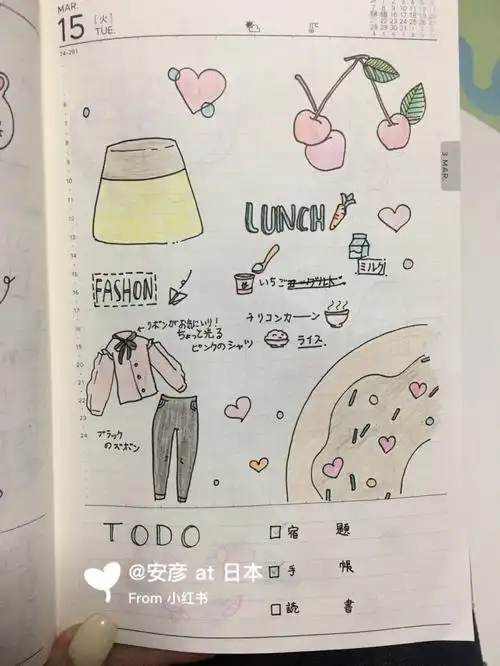 MAR.
15 [火]
TUE.
74-291
3 MAR.
LUNCH
ミルク
いちごヨーグルト
チリコンカーン
ライス
FASHON
←リボンがお気にいり!
ちょっと光る
ピンクのシャツ
ブラック
のズボン
TODO
宿 題
手 帳
読 書
@安彦 at 日本
From 小红书